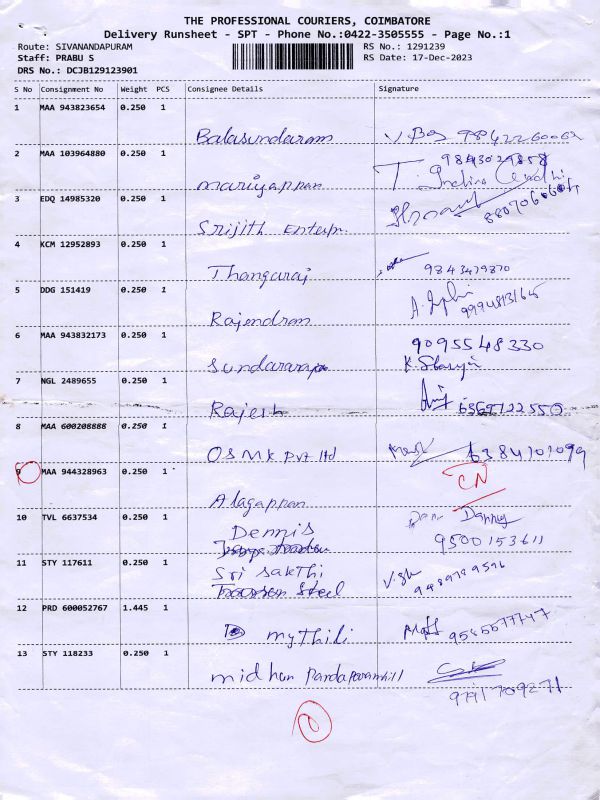 THE PROFESSIONAL COURIERS, COIMBATORE
Delivery Runsheet - SPT - Phone No.:0422-3505555 - Page No.:1
Route: SIVANANDAPURAM RS No.: 1291239
Staff: PRABU S RS Date: 17-Dec-2023
DRS No.: DCJB129123901
S No Consignment No Weight PCS Consignee Details Signature
1 MAA 943823654 0.250 1
Balasundaram
2 MAA 103964880 0.250 1
Mariyappan
3 EDQ 14985320 0.250 1
Srijith Enterpr.
4 KCM 12952893 0.250 1
Thangaraj 9843479870
5 DDG 151419 0.250 1
Rajendran
6 MAA 943832173 0.250 1 9095548330
Sundararaja
7 NGL 2489655 0.250 1
Rajesh 6369722550
8 MAA 600208888 0.250 1
OSMK Pvt ltd 6384101099
9 MAA 944328963 0.250 1 CN
Alagappan
10 TVL 6637534 0.250 1 Danny
Dennis 9500153611
11 STY 117611 0.250 1
Sri Sakthi
Steel
12 PRD 600052767 1.445 1
Mythili
13 STY 118233 0.250 1
midhun 9791709271